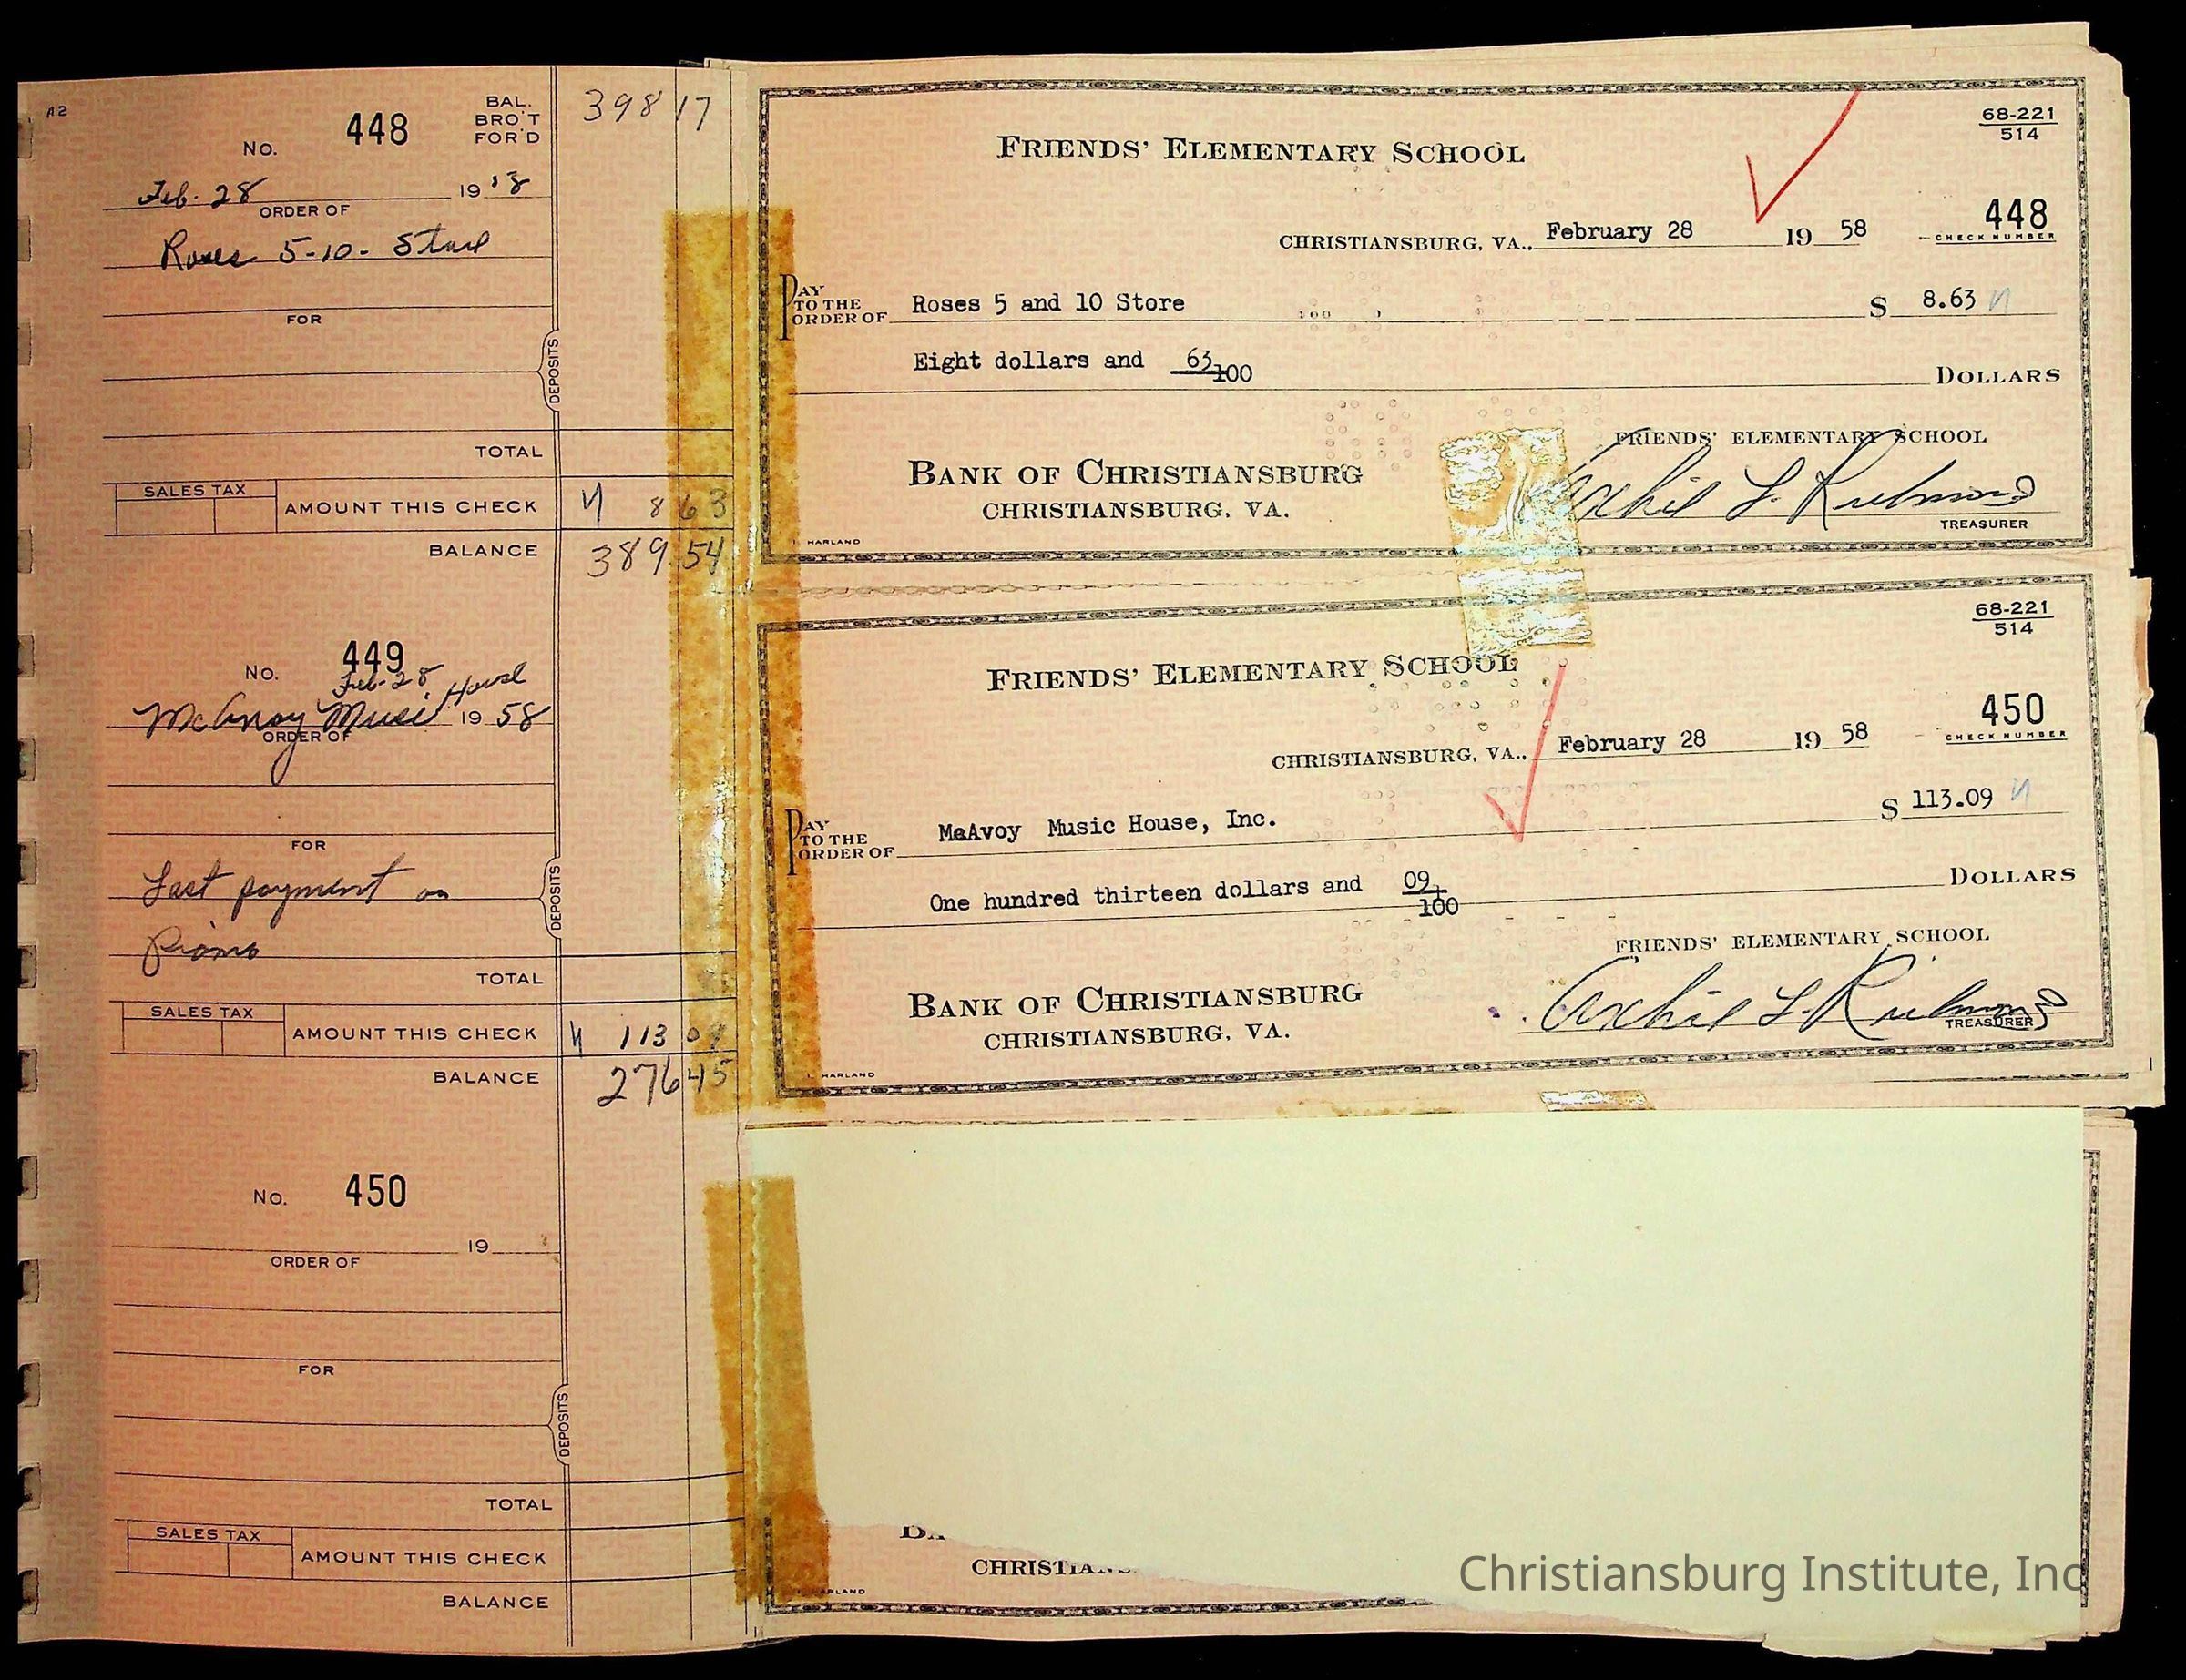 A2
No. 448
BAL.
BRO'T
FOR'D
398 17
Feb. 28 19 58
ORDER OF
Roses 5-10- Store
FOR
DEPOSITS
TOTAL
SALES TAX
AMOUNT THIS CHECK
8 63
BALANCE
389 54
No. 449
Feb. 28
McAvoy Music House 19 58
ORDER OF
FOR
Last payment on
Piano
DEPOSITS
TOTAL
SALES TAX
AMOUNT THIS CHECK
113 09
BALANCE
276 45
No. 450
19
ORDER OF
FOR
DEPOSITS
TOTAL
SALES TAX
AMOUNT THIS CHECK
BALANCE
FRIENDS' ELEMENTARY SCHOOL
68-221
514
CHRISTIANSBURG, VA., February 28 19 58
448
CHECK NUMBER
PAY TO THE ORDER OF Roses 5 and 10 Store $ 8.63
Eight dollars and 63/100 DOLLARS
BANK OF CHRISTIANSBURG
CHRISTIANSBURG, VA.
FRIENDS' ELEMENTARY SCHOOL
Archie L. Richmond
TREASURER
HARLAND
FRIENDS' ELEMENTARY SCHOOL
68-221
514
CHRISTIANSBURG, VA., February 28 19 58
450
CHECK NUMBER
PAY TO THE ORDER OF McAvoy Music House, Inc. $ 113.09
One hundred thirteen dollars and 09/100 DOLLARS
BANK OF CHRISTIANSBURG
CHRISTIANSBURG, VA.
FRIENDS' ELEMENTARY SCHOOL
Archie L. Richmond
TREASURER
HARLAND
BA
CHRISTIANS
ARLAND
Christiansburg Institute, Inc